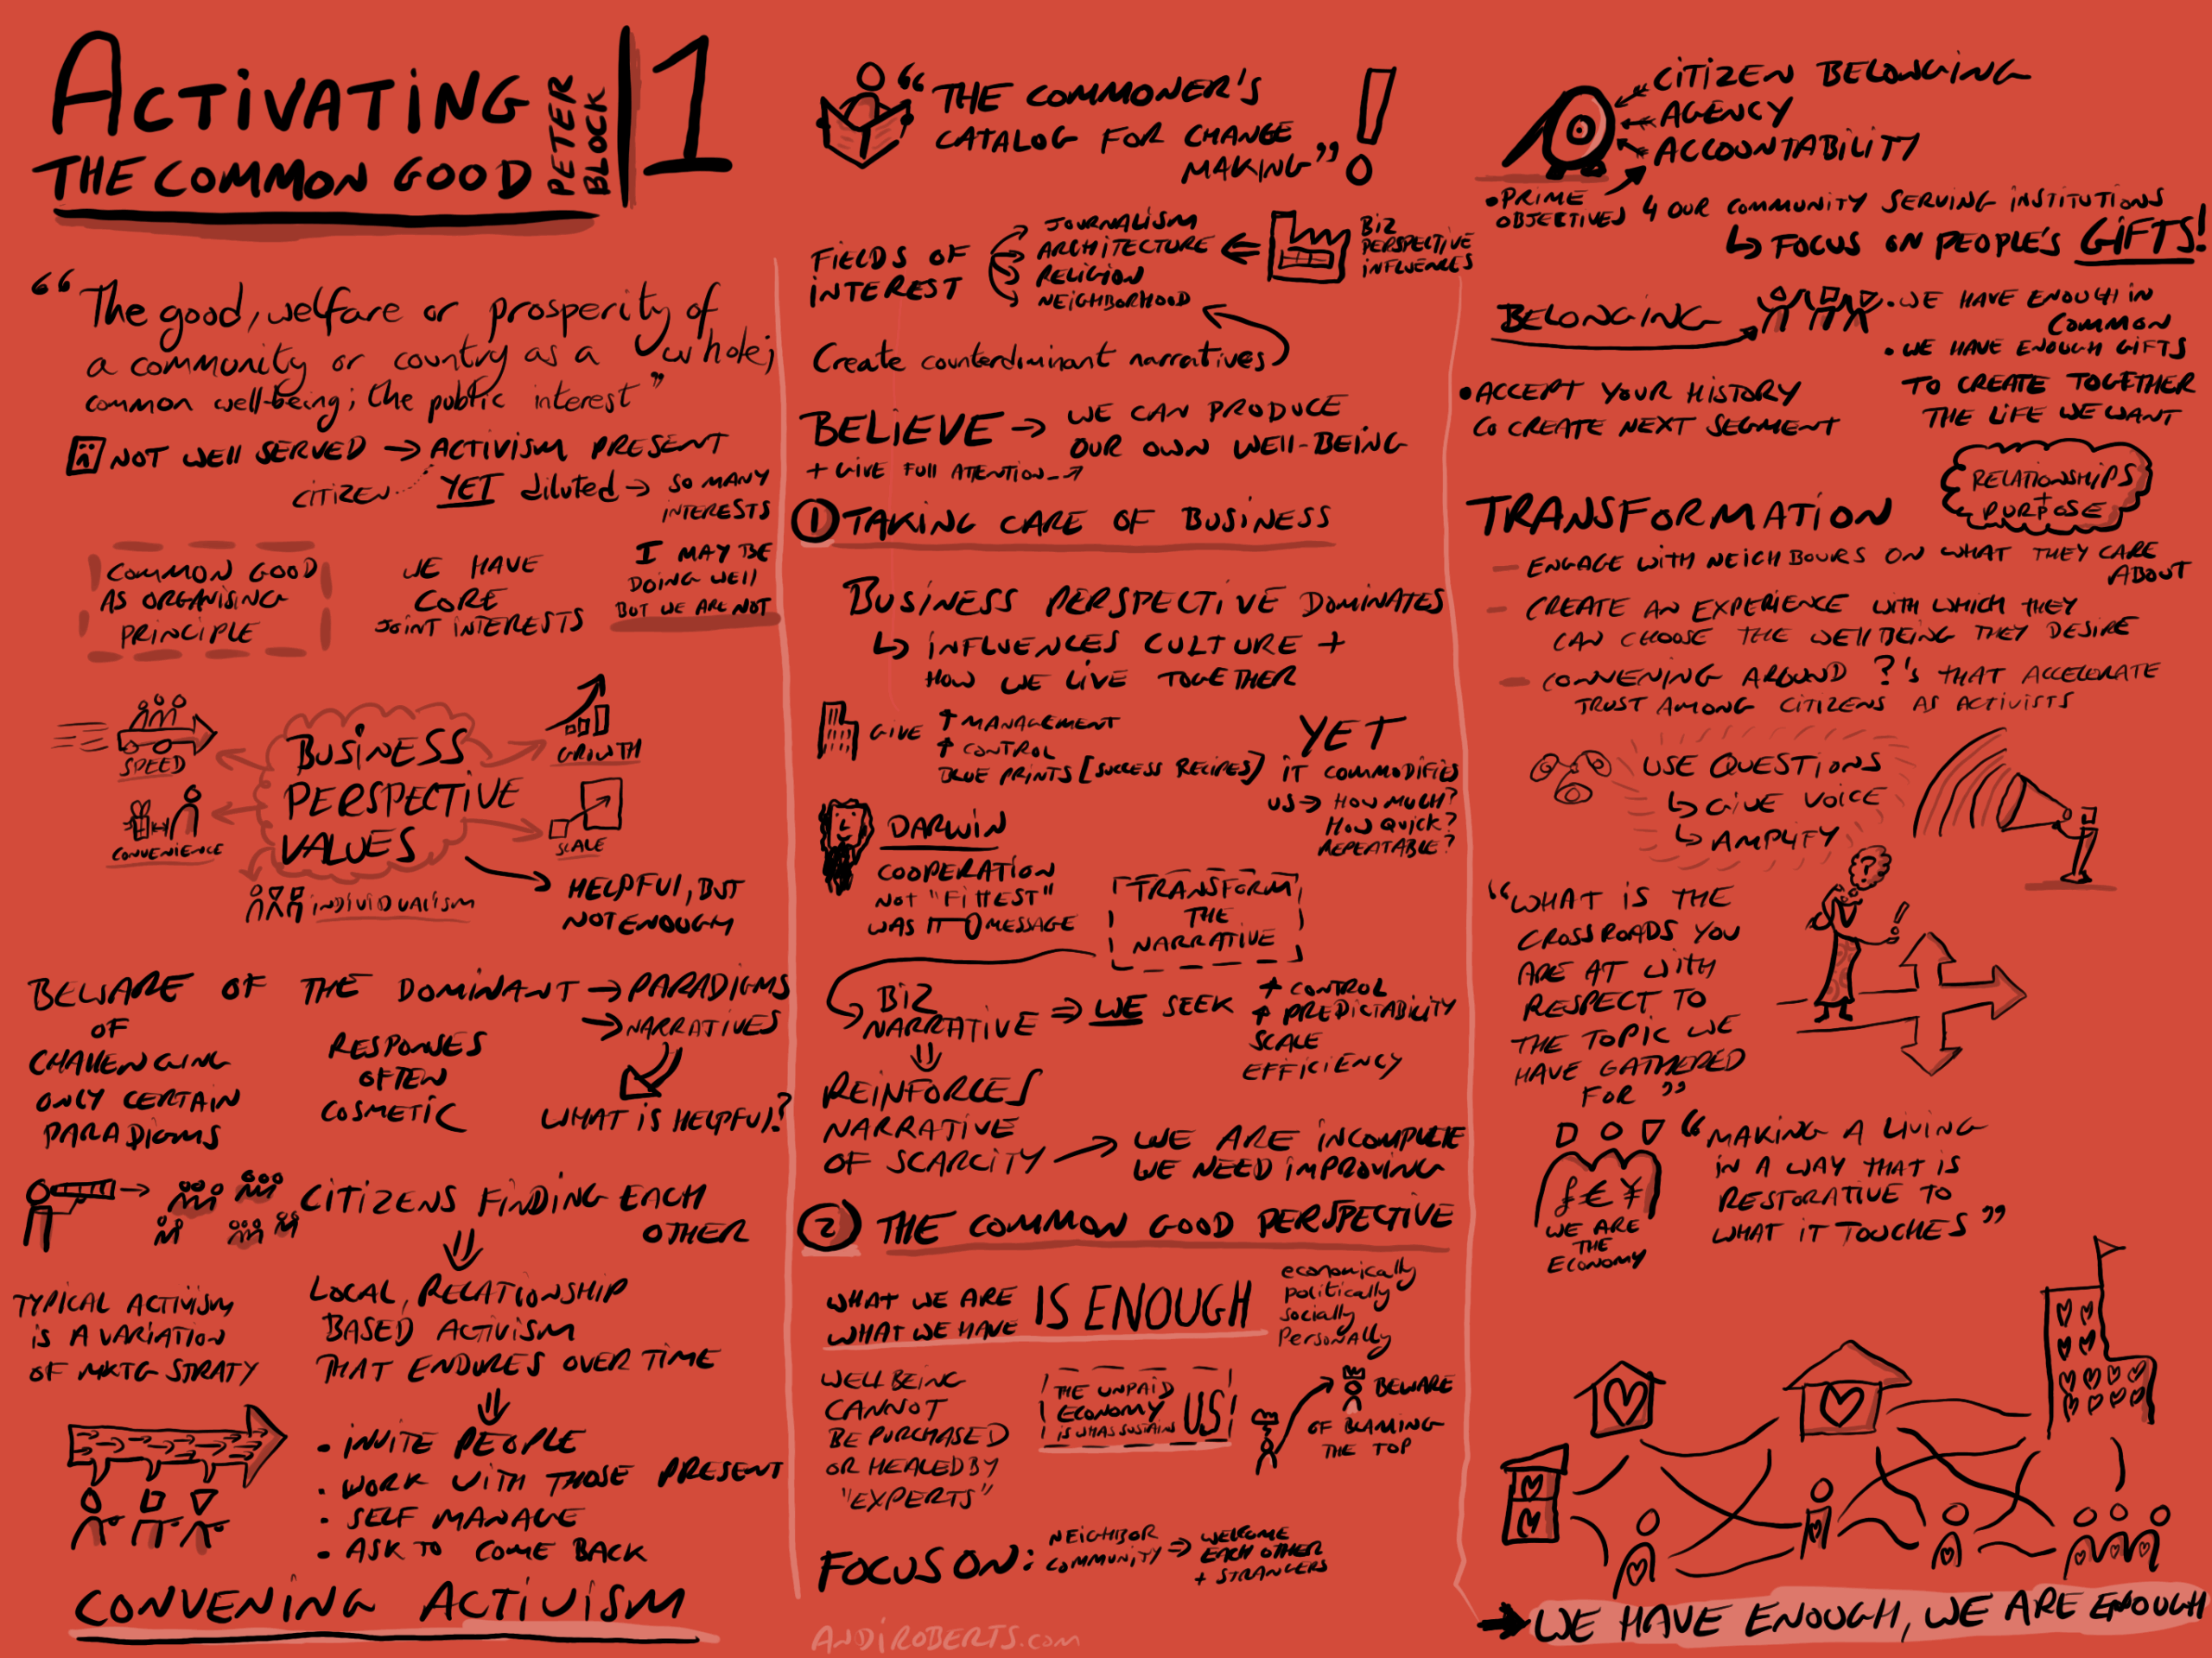 ACTIVATING
THE COMMON GOOD
PETER
BLOCK
1
“The good, welfare or prosperity of
a community or country as a whole;
common well-being; the public interest”
NOT WELL SERVED → ACTIVISM PRESENT
CITIZEN YET diluted → SO MANY
INTERESTS
COMMON GOOD
AS ORGANISING
PRINCIPLE
WE HAVE
CORE
JOINT INTERESTS
I MAY BE
DOING WELL
BUT WE ARE NOT
BUSINESS
PERSPECTIVE
VALUES
SPEED
GROWTH
CONVENIENCE
SCALE
INDIVIDUALISM
HELPFUL, BUT
NOT ENOUGH
BEWARE OF THE DOMINANT → PARADIGMS
→ NARRATIVES
OF
CHALLENGING
ONLY CERTAIN
PARADIGMS
RESPONSES
OFTEN
COSMETIC
WHAT IS HELPFUL?
CITIZENS FINDING EACH
OTHER
TYPICAL ACTIVISM
IS A VARIATION
OF MKTG STRATY
LOCAL, RELATIONSHIP
BASED ACTIVISM
THAT ENDURES OVER TIME
• INVITE PEOPLE
• WORK WITH THOSE PRESENT
• SELF MANAGE
• ASK TO COME BACK
CONVENING ACTIVISM
“THE COMMONER'S
CATALOG FOR CHANGE
MAKING”!
FIELDS OF
INTEREST
JOURNALISM
ARCHITECTURE
RELIGION
NEIGHBORHOOD
BIZ
PERSPECTIVE
INFLUENCES
Create counterdominant narratives
BELIEVE → WE CAN PRODUCE
OUR OWN WELL-BEING
+ GIVE FULL ATTENTION
1 TAKING CARE OF BUSINESS
BUSINESS PERSPECTIVE DOMINATES
↳ INFLUENCES CULTURE +
HOW WE LIVE TOGETHER
GIVE ↑ MANAGEMENT
↑ CONTROL
BLUE PRINTS [SUCCESS RECIPES]
YET
IT COMMODIFIES
US → HOW MUCH?
HOW QUICK?
REPEATABLE?
DARWIN
COOPERATION
NOT "FITTEST"
WAS MESSAGE
TRANSFORM
THE
NARRATIVE
BIZ
NARRATIVE ⇒ WE SEEK
↑ CONTROL
↑ PREDICTABILITY
SCALE
EFFICIENCY
REINFORCES
NARRATIVE
OF SCARCITY → WE ARE INCOMPLETE
WE NEED IMPROVING
2 THE COMMON GOOD PERSPECTIVE
WHAT WE ARE
WHAT WE HAVE
IS ENOUGH
economically
politically
socially
Personally
WELLBEING
CANNOT
BE PURCHASED
OR HEALED BY
"EXPERTS"
THE UNPAID
ECONOMY
IS WHAT SUSTAINS
US!
BEWARE
OF BLAMING
THE TOP
FOCUS ON:
NEIGHBOR
COMMUNITY ⇒ WELCOME
EACH OTHER
+ STRANGERS
ANDIROBERTS.com
CITIZEN BELONGING
AGENCY
ACCOUNTABILITY
• PRIME
OBJECTIVES 4 OUR COMMUNITY SERVING INSTITUTIONS
↳ FOCUS ON PEOPLE'S GIFTS!
BELONGING
• WE HAVE ENOUGH IN
COMMON
• WE HAVE ENOUGH GIFTS
TO CREATE TOGETHER
THE LIFE WE WANT
• ACCEPT YOUR HISTORY
CO CREATE NEXT SEGMENT
TRANSFORMATION
RELATIONSHIPS
+
PURPOSE
— ENGAGE WITH NEIGHBOURS ON WHAT THEY CARE
ABOUT
— CREATE AN EXPERIENCE WITH WHICH THEY
CAN CHOOSE THE WELLBEING THEY DESIRE
— CONVENING AROUND ?'s THAT ACCELERATE
TRUST AMONG CITIZENS AS ACTIVISTS
USE QUESTIONS
↳ GIVE VOICE
↳ AMPLIFY
?
!
“WHAT IS THE
CROSSROADS YOU
ARE AT WITH
RESPECT TO
THE TOPIC WE
HAVE GATHERED
FOR”
£ € ¥
WE ARE
THE
ECONOMY
“MAKING A LIVING
IN A WAY THAT IS
RESTORATIVE TO
WHAT IT TOUCHES”
→ WE HAVE ENOUGH, WE ARE ENOUGH